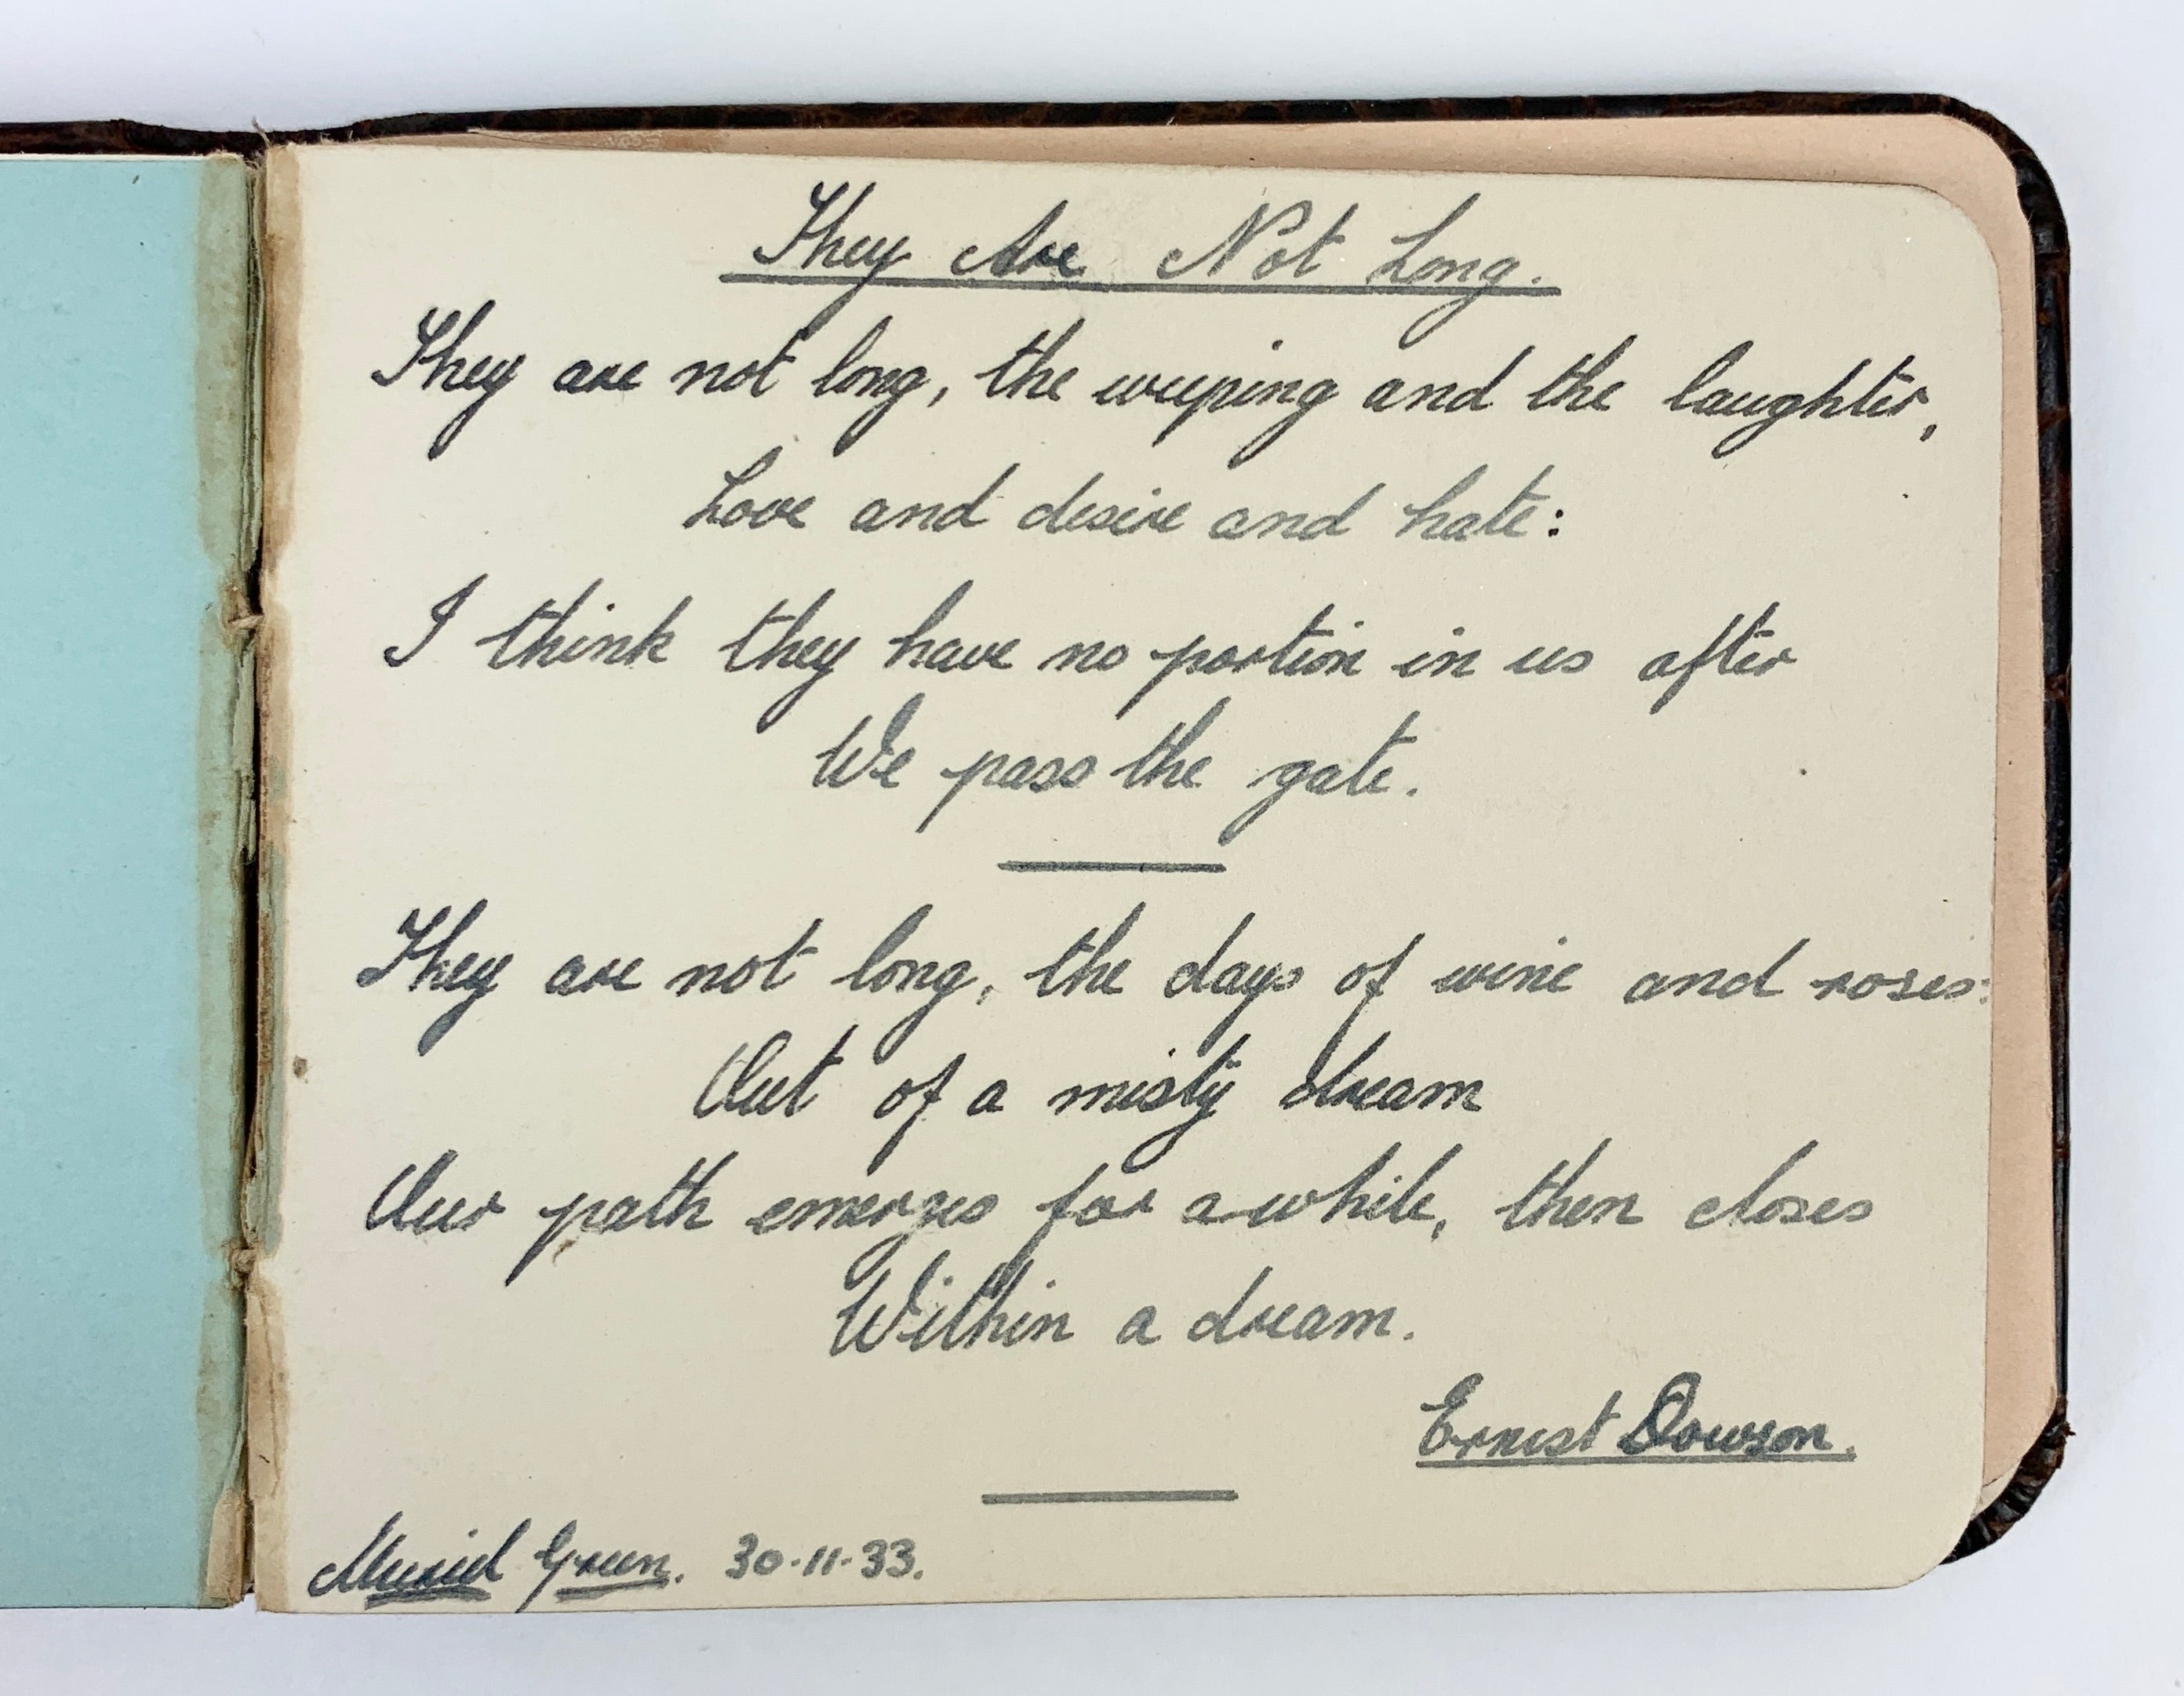 They Are Not Long.
They are not long, the weeping and the laughter,
Love and desire and hate:
I think they have no portion in us after
We pass the gate.
They are not long, the days of wine and roses:
Out of a misty dream
Our path emerges for a while, then closes
Within a dream.
Ernest Dowson.
Muriel Green. 30-11-33.